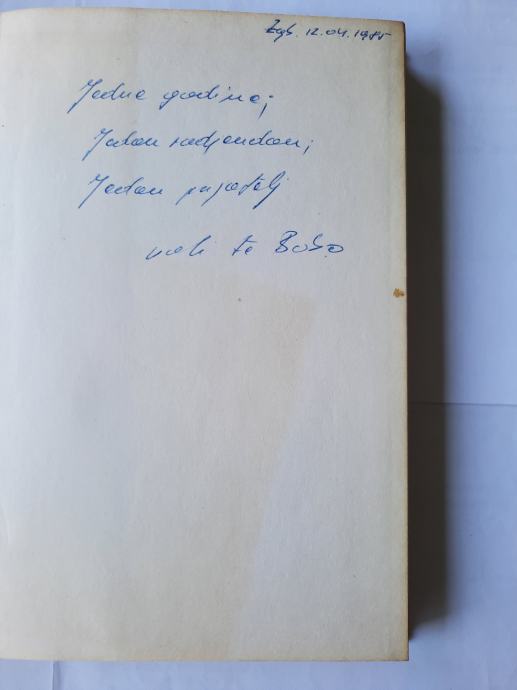 Zgb. 12.04.1985
Jedna godina;
Jedan rodjendan;
Jedan prijatelj
voli te Bobo